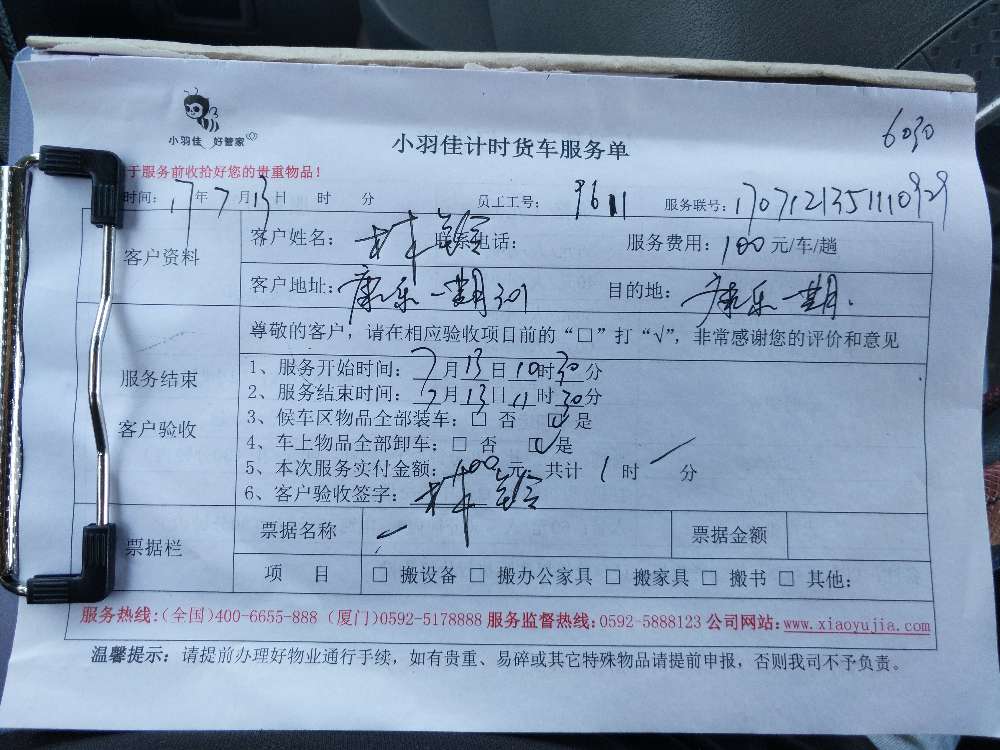 6030
小羽佳 好管家
小羽佳计时货车服务单
于服务前收拾好您的贵重物品！
时间：17年7月13日 时 分 员工工号：9611 服务联号：1707121351110929
客户资料 客户姓名： 联系电话： 服务费用：100元/车/趟
客户地址：康乐一期301 目的地：康乐一期.
尊敬的客户，请在相应验收项目前的“□”打“√”，非常感谢您的评价和意见
服务结束
客户验收
1、服务开始时间：7月13日10时30分
2、服务结束时间：7月13日11时30分
3、候车区物品全部装车：□ 否 ☑ 是
4、车上物品全部卸车：□ 否 ☑ 是
5、本次服务实付金额：100元；共计 1 时 分
6、客户验收签字：
票据栏 票据名称 票据金额
项 目 □ 搬设备 □ 搬办公家具 □ 搬家具 □ 搬书 □ 其他：
服务热线：(全国)400-6655-888 (厦门)0592-5178888 服务监督热线：0592-5888123 公司网站：www.xiaoyujia.com
温馨提示：请提前办理好物业通行手续，如有贵重、易碎或其它特殊物品请提前申报，否则我司不予负责。